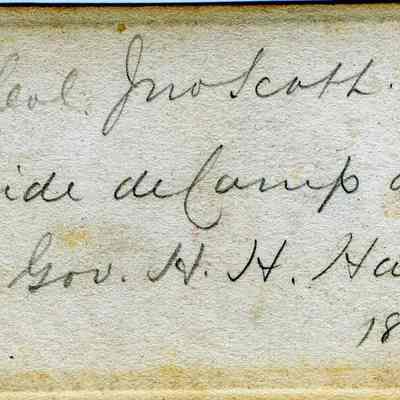 Col. Jno Scott.
ide de Camp
Gov. H. H. Ha
18